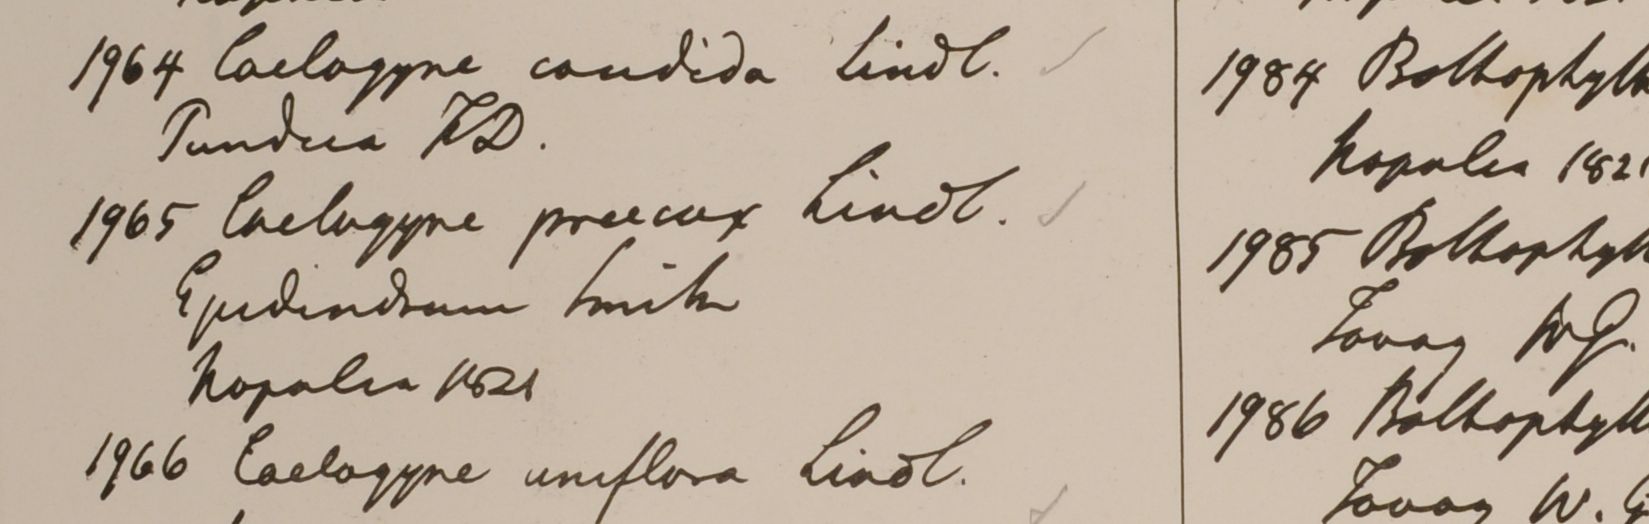 1964 Coelogyne candida Lindl.
Pundua F.D.
1965 Coelogyne praecox Lindl.
Epidendrum Smith
Napalia 1821
1966 Coelogyne uniflora Lindl.
1984 Bolbophyll
Napalia 1821
1985 Bolbophyll
Tavoy W.G.
1986 Bolbophyll
Tavoy W. G